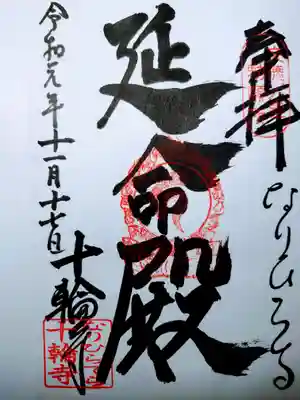 奉拝
なりひらる
延命殿
令和元年十一月十七日
十輪寺
なりひら寺
十輪寺